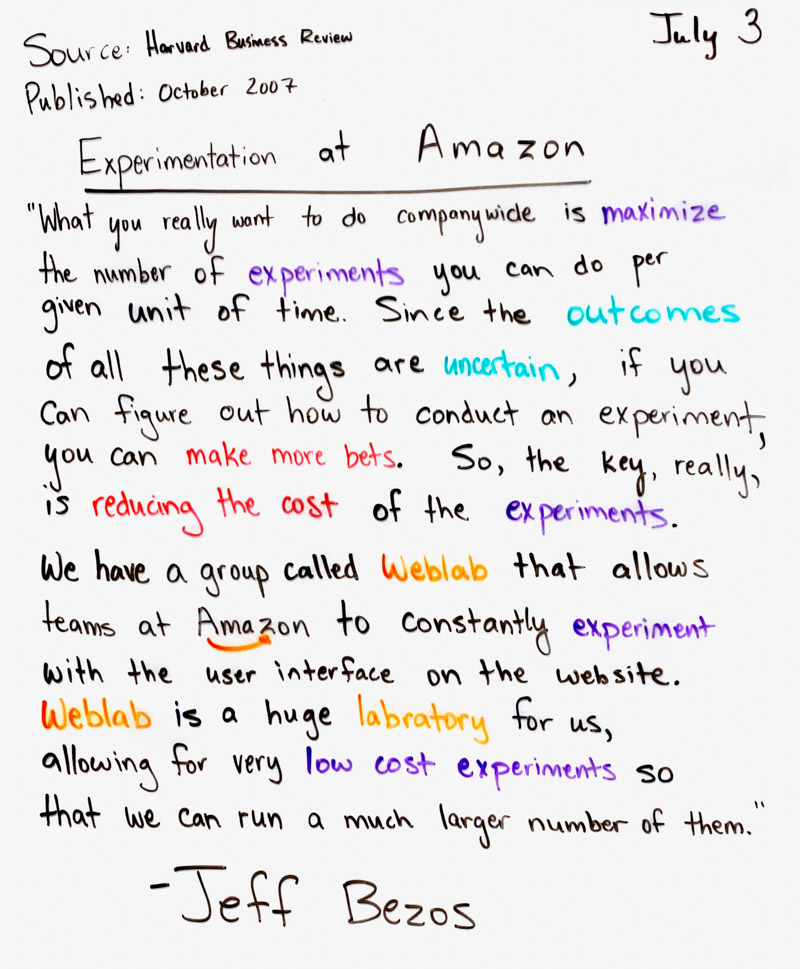 Source: Harvard Business Review
July 3
Published: October 2007
Experimentation at Amazon
"What you really want to do companywide is maximize
the number of experiments you can do per
given unit of time. Since the outcomes
of all these things are uncertain, if you
can figure out how to conduct an experiment,
you can make more bets. So, the key, really,
is reducing the cost of the experiments.
We have a group called Weblab that allows
teams at Amazon to constantly experiment
with the user interface on the website.
Weblab is a huge labratory for us,
allowing for very low cost experiments so
that we can run a much larger number of them."
-Jeff Bezos